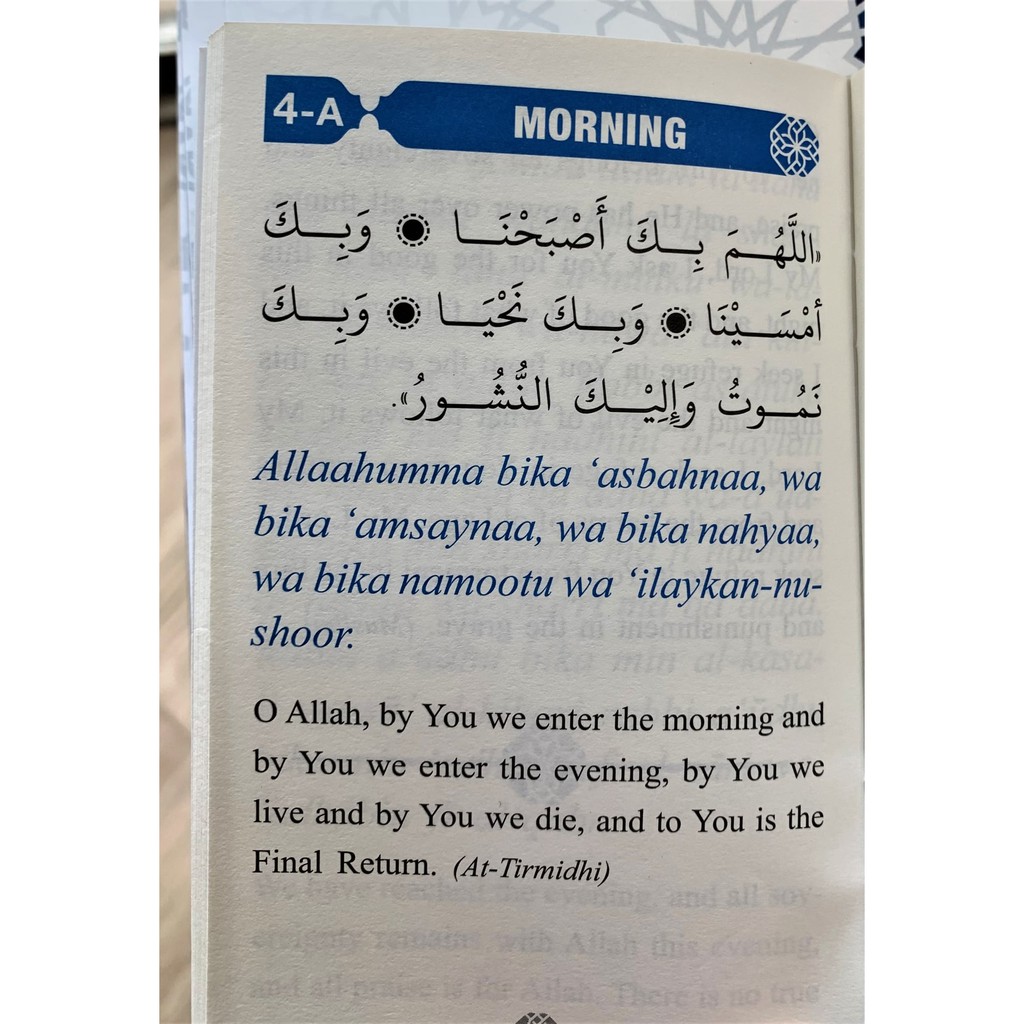 4-A MORNING
«اللَّهُـمَ بِـكَ أَصْبَحْنَـا ۞ وَبِـكَ
أمْسَـيْنَا ۞ وَبِـكَ نَحْيَـا ۞ وَبِـكَ
نَمُـوتُ وَإِلِيْـكَ النُّشُـورُ».
Allaahumma bika ‘asbahnaa, wa
bika ‘amsaynaa, wa bika nahyaa,
wa bika namootu wa ‘ilaykan-nu-
shoor.
O Allah, by You we enter the morning and
by You we enter the evening, by You we
live and by You we die, and to You is the
Final Return. (At-Tirmidhi)